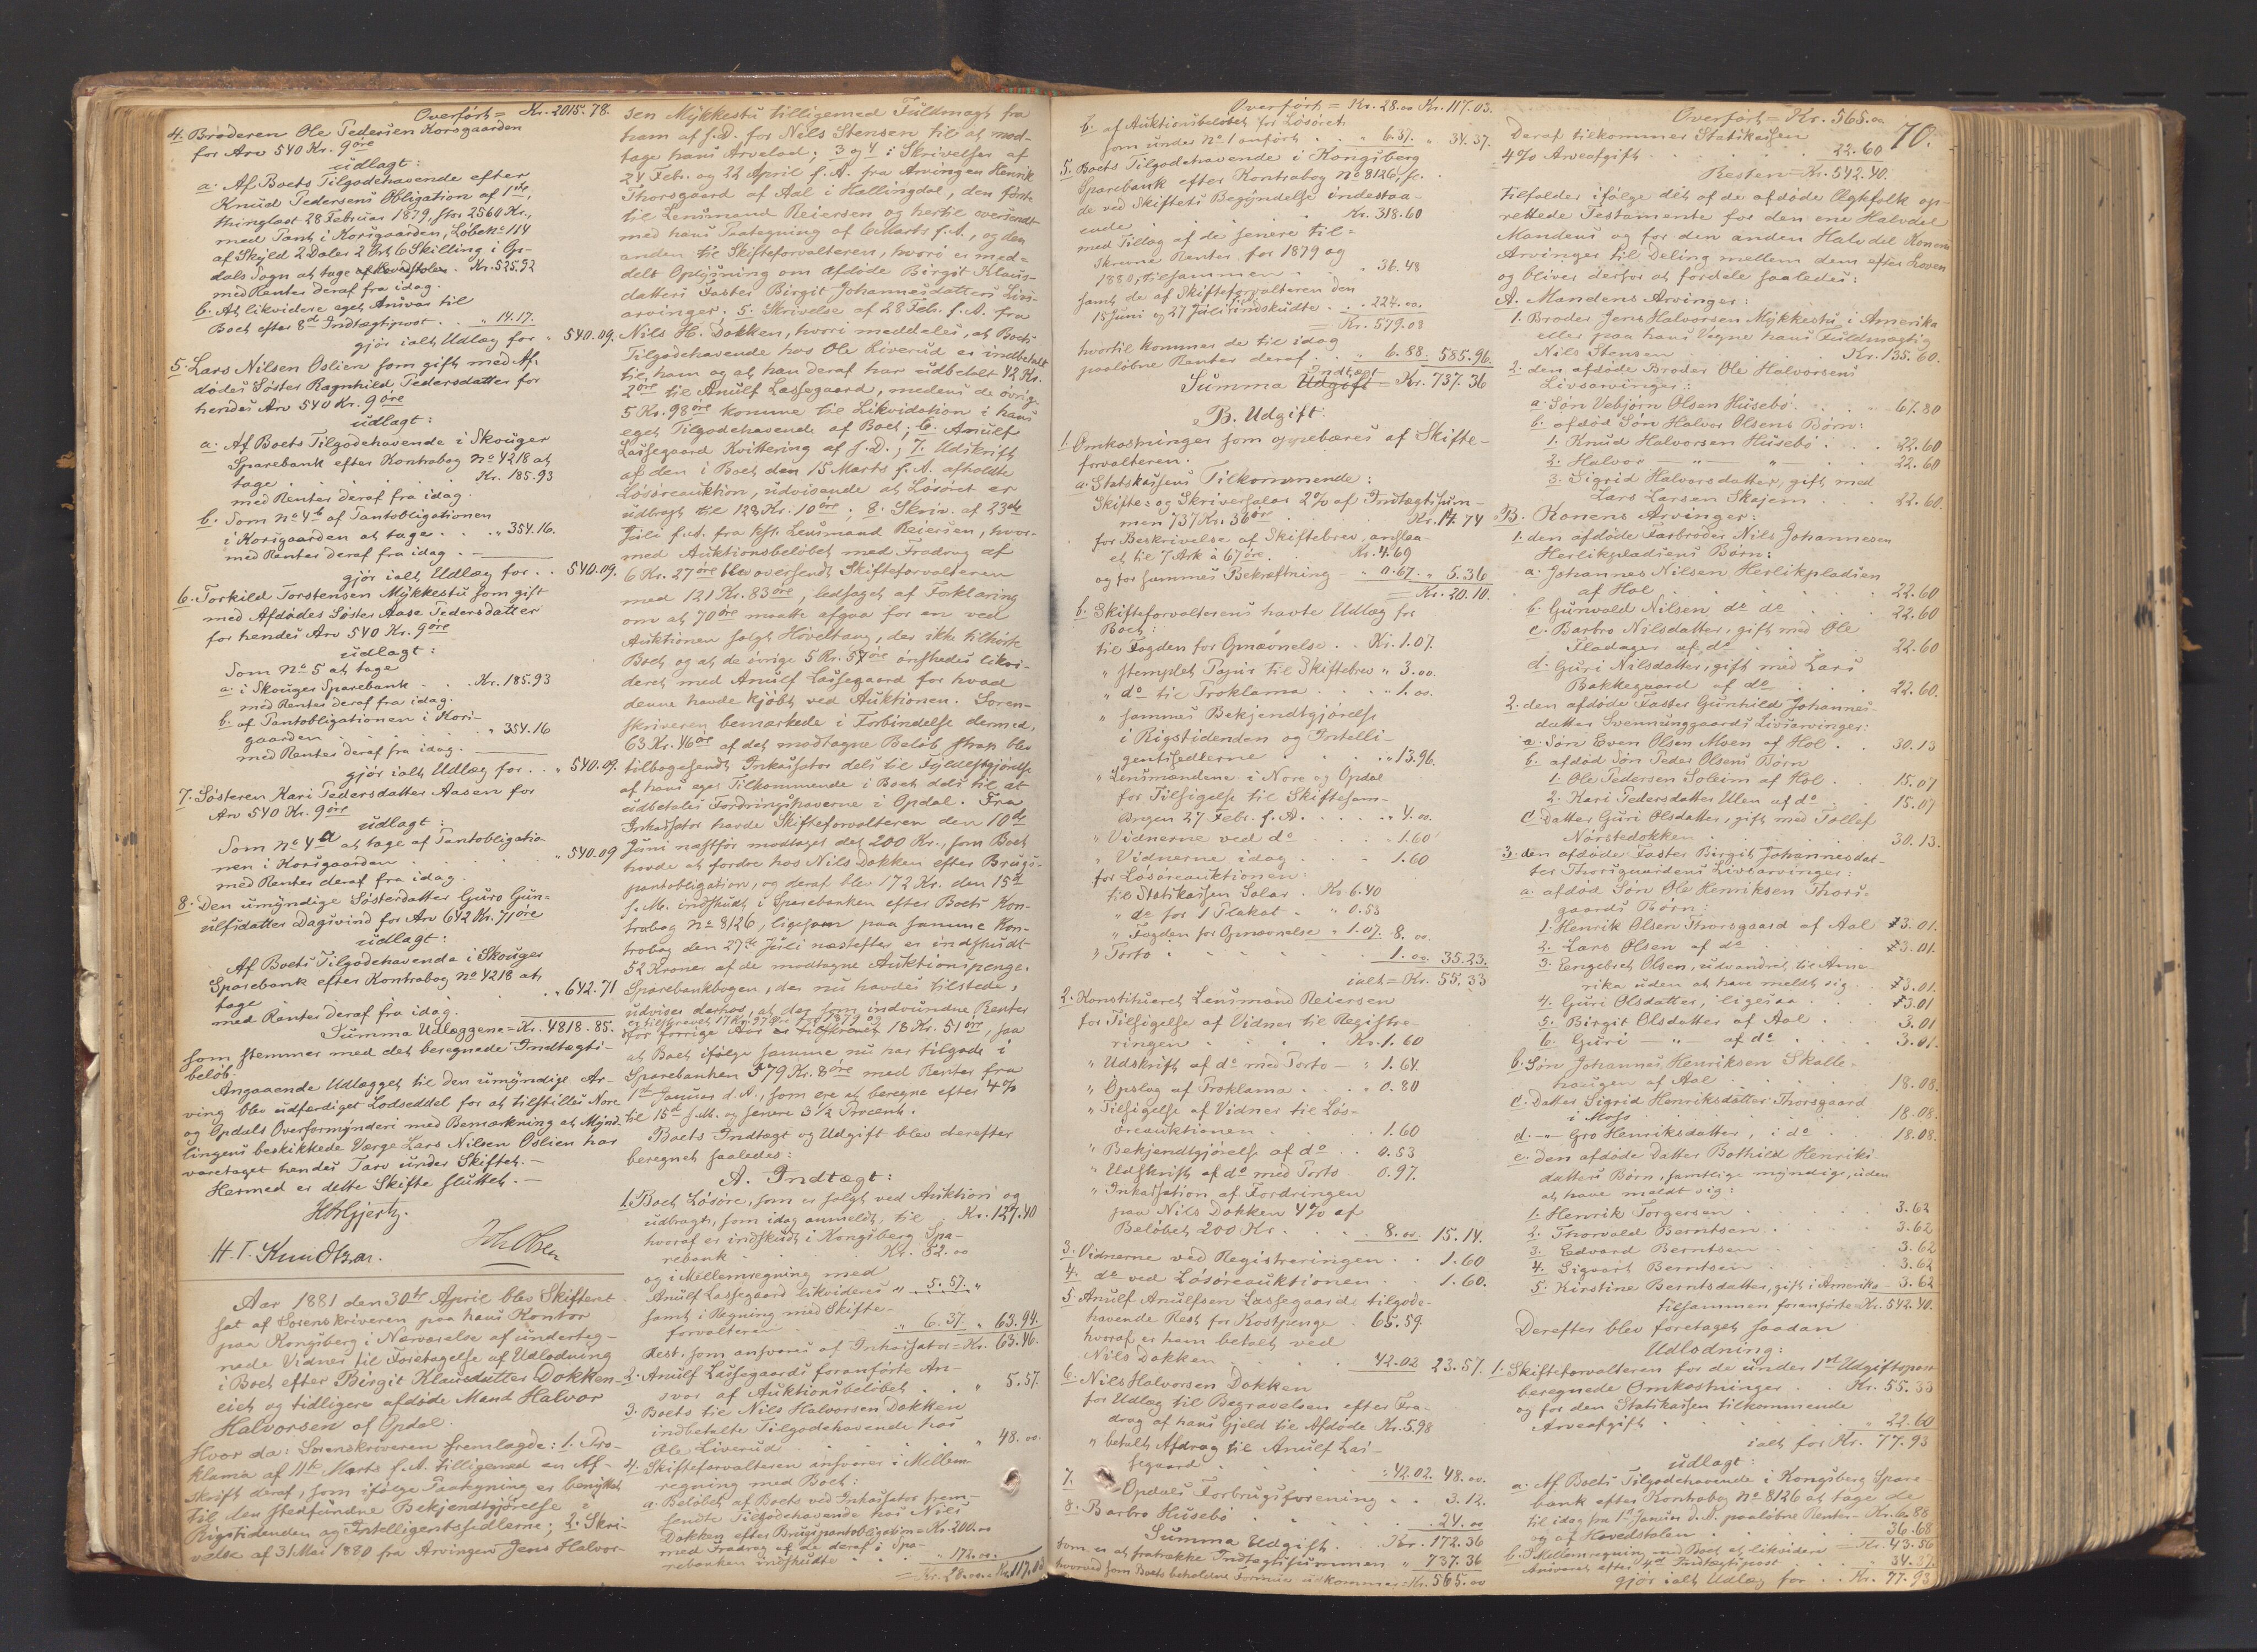 Overført = Kr. 2015.78.
4. Broderen Ole Pedersen Korsgaarden
for Arv 540 Kr. 9 øre
udlagt:
a. Af Boets Tilgodehavende efter
Knud Pedersens Obligation af 1ste,
thinglæst 28 Februar 1879, stor 2560 Kr.,
med Pant i Korsgaarden, Løbe No 114
af Skyld 2 Daler 2 Ort 6 Skilling i Op-
dals Sogn at tage af Hovedstolen . Kr. 525.92
med Renter deraf fra idag.
b. At likvidere eget Ansvar til
Boet efter 8de Indtægtspost . . " 14.17.
gjør ialt Udlæg for " 540.09.
5. Lars Nilsen Oslien som gift med Af-
dødes Søster Ragnhild Pedersdatter for
hendes Arv 540 Kr. 9 øre
udlagt:
a. Af Boets Tilgodehavende i Skouger
Sparebank efter Kontrabog No 4218 at
tage . . . . . Kr. 185.93
med Renter deraf fra idag.
b. Som No 4b af Pantobligationen
i Korsgaarden at tage . . . " 354.16.
med Renter deraf fra idag .
gjør ialt Udlæg for . . 540.09.
6. Torkild Torstensen Mykkestu som gift
med Afdødes Søster Aase Pedersdatter
for hendes Arv 540 Kr. 9 øre
udlagt:
Som No 5 at tage
a. i Skouger Sparebank . . . Kr. 185.93
med Renter deraf fra idag.
b. af Pantobligationen i Kors-
gaarden . . . . " 354.16
med Renter deraf fra idag.
gjør ialt Udlæg for . . " 540.09.
7. Søsteren Kari Pedersdatter Aasen for
Arv 540 Kr. 9 øre
udlagt:
Som No 4a at tage af Pantobligatio-
nen i Korsgaarden . . . " 540.09
med Renter deraf fra idag.
8. Den umyndige Søsterdatter Guro Gun-
ulfsdatter Dagsvind for Arv 642 Kr. 71 øre
udlagt:
Af Boets Tilgodehavende i Skouger
Sparebank efter Kontrabog No 4218 at
tage . . . . . " 642.71
med Renter deraf fra idag.
Summa Udlæggene = Kr. 4818.85.
som stemmer med det beregnede Indtægts-
beløb.
Angaaende Udlægget til den umyndige Ar-
ving blev udfærdiget Lodseddel for at tilstilles Nore
og Opdals Overformynderi med Bemærkning at Mynd-
lingens beskikkede Værge Lars Nilsen Oslien har
varetaget hendes Tarv under Skiftet. —
Hermed er dette Skifte sluttet. —
H. T. Knudtzon.
Aar 1881 den 30te April blev Skifteret
sat af Sorenskriveren paa hans Kontor
paa Kongsberg i Nærværelse af underteg-
nede Vidner til Foretagelse af Udlodning
i Boet efter Birgit Klausdatter Dokken-
eiet og tidligere afdøde Mand Halvor
Halvorsen af Opdal.
Hvor da: Sorenskriveren fremlagde: 1. Pro-
klama af 11te Marts f.A. tilligemed en Af-
skrift deraf, som ifølge Paategning er benyttet
til den stedfundne Bekjendtgjørelse i
Rigstidenden og Intelligentssedlerne; 2. Skri-
velse af 31 Mai 1880 fra Arvingen Jens Halvor-
sen Mykkestu tilligemed Fuldmagt fra
ham af s.D. for Nils Stensen til at mod-
tage hans Arvelod; 3 og 4: Skrivelser af
24 Febr. og 22 April f.A. fra Arvingen Henrik
Thorsgaard af Aal i Hallingdal, den første
til Lensmand Reiersen og hertil oversendt
med hans Paategning af 6 Marts f.A., og den
anden til Skifteforvalteren, hvori er med-
delt Oplysning om afdøde Birgit Klaus-
datters Faster Birgit Johannesdatters Livs-
arvinger; 5. Skrivelse af 28 Feb. f.A. fra
Nils H. Dokken, hvori meddeles, at Boets
Tilgodehavende hos Ole Liverud er indbetalt
til ham og at han deraf har udbetalt 42 Kr.
2 øre til Anulf Lassegaard, medens de øvrige
5 Kr. 98 øre komme til Likvidation i hans
eget Tilgodehavende af Boet; 6. Anulf
Lassegaard Kvittering af s.D.; 7. Udskrift
af den i Boet den 15 Marts f.A. afholdte
Løsøreauktion, udvisende at Løsøret er
udbragt til 128 Kr. 10 øre; 8. Skriv. af 23de
Juli f.A. fra kst. Lensmand Reiersen, hvor-
med Auktionsbeløbet med Fradrag af
6 Kr. 27 øre blev oversendt Skifteforvalteren
med 121 Kr. 83 øre, ledsaget af Forklaring
om at 70 øre maatte afgaa for en ved
Auktionen solgt Høveltang, der ikke tilhørte
Boet og at de øvrige 5 Kr. 57 øre ønskedes likvi-
deret med Anulf Lassegaard for hvad
denne havde kjøbt ved Auktionen. Soren-
skriveren bemærkede i Forbindelse dermed,
63 Kr. 46 øre af det modtagne Beløb strax blev
tilbagesendt Inkassator dels til Fyldestgjørelse
af hans eget Tilkommende i Boet dels til at
udbetales Fordringshaverne i Opdal. Fra
Inkassator havde Skifteforvalteren den 10de
Juni næstfør modtaget det 200 Kr., som Boet
havde at fordre hos Nils Dokken efter Brugs-
pantobligation, og deraf blev 172 Kr. den 15de
s.M. indskudt i Sparebanken efter Boets Kon-
trabog No 8126, ligesom paa samme Kon-
trabog den 27de Juli næstefter er indskudt
52 Kroner af de modtagne Auktionspenge.
Sparebankbogen, der nu havdes tilstede,
udviser derhos, at der som indvundne Renter
er tilskrevet 17 Kr. 97 øre for 1879 og
for forrige Aar er tilskrevet 18 Kr. 51 øre, saa
at Boet ifølge samme nu har tilgode i
Sparebanken 579 Kr. 8 øre med Renter fra
1ste Januar d.A., som ere at beregne efter 4%
til 15de s.M. og senere 3 1/2 Procent.
Boets Indtægt og Udgift blev derefter
beregnet saaledes:
A. Indtægt:
1. Boets Løsøre, som er solgt ved Auktion og
udbragt, som idag anmeldt, til . Kr. 127.40
hvoraf er indskudt i Kongsberg Spa-
rebank . . . . Kr. 52.00
og i Mellemregning med
Anulf Lassegaard likvideres " 5.57. "
samt i Regning med Skifte-
forvalteren . . " 6.37. " 63.94.
Rest, som ansvares af Inkassator = Kr. 63.46.
2. Anulf Lassegaards foranførte An-
svar af Auktionsbeløbet . . " 5.57.
3. Boets til Nils Halvorsen Dokken
indbetalte Tilgodehavende hos
Ole Liverud . . . . " 48.00
4. Skifteforvalteren ansvarer i Mellem-
regning med Boet:
a. Beløbet af Boets ved Inkassator frem-
sendte Tilgodehavende hos Nils
Dokken efter Brugspantobligation = Kr. 200.00
med Fradrag af de deraf i Spa-
rebanken indskudte . . " 172.00
= Kr. 28.00 Kr. 117.03
Overført = Kr. 28.00 Kr. 117.03.
b. af Auktionsbeløbet for Løsøret,
som under No 1 anført . . " 6.37. " 34.37.
5. Boets Tilgodehavende i Kongsberg
Sparebank efter Kontrabog No 8126, se.
de ved Skiftets Begyndelse indestaa-
ende . . . Kr. 318.60
med Tillæg af de senere til-
skrevne Renter for 1879 og
1880, tilsammen . . . " 36.48
samt de af Skifteforvalteren den
15 Juni og 27 Juli f.A. indskudte . . " 224.00.
= Kr. 579.08
hvortil kommer de til idag
paaløbne Renter deraf . . " 6.88. 585.96.
Indtægt
Summa Udgift = Kr. 737.36
B. Udgift:
1. Omkostninger som oppebæres af Skifte-
forvalteren.
a. Statskassens Tilkommende:
Skifte- og Skriversalær 2% af Indtægtssum-
men 737 Kr. 36 øre . . . Kr. 14.74
for Beskrivelse af Skiftebrev, anslaa-
et til 7 Ark à 67 øre . . Kr. 4.69
og for sammes Bekræftning — " 0.67. " 5.36
= Kr. 20.10.
b. Skifteforvalterens havte Udlæg for
Boet:
til Fogden for Opnævnelse . . Kr. 1.07.
" stemplet Papir til Skiftebrev " 3.00.
" do til Proklama . . . " 1.00.
" sammes Bekjendtgjørelse
i Rigstidenden og Intelli-
gentssedlerne . . . . " 13.96.
" Lensmændene i Nore og Opdal
for Tilsigelse til Skiftesam-
lingen 27 Febr. f.A. . . . " 4.00.
" Vidnerne ved do . . . 1.60
" Vidnerne idag . . . 1.60
for Løsøreauktionen:
til Statskassen Salær . Kr. 6.40
" do for 1 Plakat . " 0.53
" Fogden for Opnævnelse " 1.07. 8.00.
" Porto . . . . 1.00. 35.23.
ialt = Kr. 55.33
2. Konstitueret Lensmand Reiersen
for Tilsigelse af Vidner til Registre-
ringen . . . . Kr. 1.60
" Udskrift af do med Porto — " 1.64.
" Opslag af Proklama . . . " 0.80
" Tilsigelse af Vidner til Løs-
øreauktionen . . . 1.60
" Bekjendtgjørelse af do . . 0.53
" Udskrift af do med Porto . 0.97.
" Inkassation af Fordringen
paa Nils Dokken 4% af
Beløbet 200 Kr. . . . 8.00 15.14.
3. Vidnerne ved Registreringen . . 1.60
4. do ved Løsøreauktionen . . 1.60.
5. Anulf Anulfsen Lassegaards tilgode-
havende Rest for Kostpenge . 65.59.
hvoraf er ham betalt ved
Nils Dokken . . . . 42.02 23.57.
6. Nils Halvorsen Dokken
for Udlæg til Begravelsen efter Fra-
drag af hans Gjeld til Afdøde Kr. 5.98
" betalt Afdrag til Anulf Las-
segaard . . . . " 42.02. 48.00.
7. Opdals Forbrugsforening . . 3.12.
8. Barbro Husebø . . . . 24.00
Summa Udgift . . Kr. 172.36
som er at fratrække Indtægtssummen " 737.36
hvorved som Boets beholdne Formue udkommer = Kr. 565.00
70.
Overført = Kr. 565.00
Deraf tilkommer Statskassen
4% Arveafgift . . . 22.60
Resten = Kr. 542.40.
tilfalder ifølge det af de afdøde Ægtefolk op-
rettede Testamente for den ene Halvdel
Mandens og for den anden Halvdel Konens
Arvinger til Deling mellem dem efter Loven
og bliver derfor at fordele saaledes:
A. Mandens Arvinger:
1. Broder Jens Halvorsen Mykkestu i Amerika
eller paa hans Vegne hans Fuldmægtig
Nils Stensen . . . Kr. 135.60.
2. den afdøde Broder Ole Halvorsens
Livsarvinger:
a. Søn Vebjørn Olsen Husebø . . . 67.80
b. afdød Søn Halvor Olsens Børn:
1. Knud Halvorsen Husebø . . . 22.60
2. Halvor — " — " — . . 22.60
3. Sigrid Halvorsdatter, gift med
Lars Larsen Skajem . . 22.60.
B. Konens Arvinger:
1. den afdøde Farbroder Nils Johannesen
Herlikpladsens Børn:
a. Johannes Nilsen Herlikpladsen
af Hol . . . . 22.60
b. Gunvald Nilsen do do . . . 22.60
c. Barbro Nilsdatter, gift med Ole
Fladager af do . . . 22.60
d. Guri Nilsdatter, gift med Lars
Bakkegaard af do . . . 22.60.
2. den afdøde Faster Gunhild Johannes-
datter Svenunggaards Livsarvinger:
a. Søn Even Olsen Moen af Hol . . 30.13
b. afdød Søn Peder Olsens Børn
1. Ole Pedersen Soleim af Hol . 15.07
2. Kari Pedersdatter Ulen af do . 15.07
c. Datter Guri Olsdatter, gift med Tollef
Nørstedokken . . . 30.13.
3. den afdøde Faster Birgit Johannesdat-
ter Thorsgaardens Livsarvinger:
a. afdød Søn Ole Henriksen Thors-
gaards Børn:
1. Henrik Olsen Thorsgaard af Aal 3.01.
2. Lars Olsen af do . . . 3.01.
3. Engebret Olsen, udvandret til Ame-
rika uden at have meldt sig . 3.01.
4. Guri Olsdatter, ligesaa . . 3.01
5. Birgit Olsdatter af Aal . . 3.01
6. Guri — " — af do . . . 3.01.
b. Søn Johannes Henriksen Skalle-
haugen af Aal . . . 18.08.
c. Datter Sigrid Henriksdatter Thorsgaard
i Moss . . . . 18.08.
d. — " — Gro Henriksdatter, i do . . 18.08.
e. den afdøde Datter Bothild Henriks-
datters Børn, samtlige myndige, uden
at have meldt sig:
1. Henrik Torgersen . . . 3.62
2. Thorvald Berntsen . . . 3.62
3. Edvard Berntsen . . . 3.62
4. Sigvart Berntsen . . . 3.62
5. Kirstine Berntsdatter, gift i Amerika — 3.62
tilsammen foranførte = Kr. 542.40.
Derefter blev foretaget saadan
Udlodning:
1. Skifteforvalteren for de under 1ste Udgiftspost
beregnede Omkostninger . . Kr. 55.33
og for den Statskassen tilkommende
Arveafgift . . . . " 22.60
ialt for Kr. 77.93
udlagt:
a. Af Boets Tilgodehavende i Kongsberg Spare-
bank efter Kontrabog No 8126 at tage de
til idag fra 1ste Januar d.A. paaløbne Renter — Kr. 6.88
og af Hovedstolen . . . 36.68
= Kr. 43.56
b. I Mellemregning med Boet at likvidere
Ansvaret efter 4de Indtægtspost . . 34.37.
gjør ialt Udlæg for . . Kr. 77.93